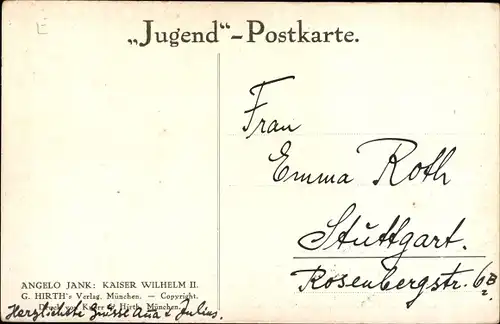 „Jugend“-Postkarte.
Frau
Emma Roth
Stuttgart.
Rosenbergstr. 6B
ANGELO JANK: KAISER WILHELM II.
G. HIRTH's Verlag, München. — Copyright.
Druck von & Hirth, München.
Herzlichste Grüsse Ana & Julius.